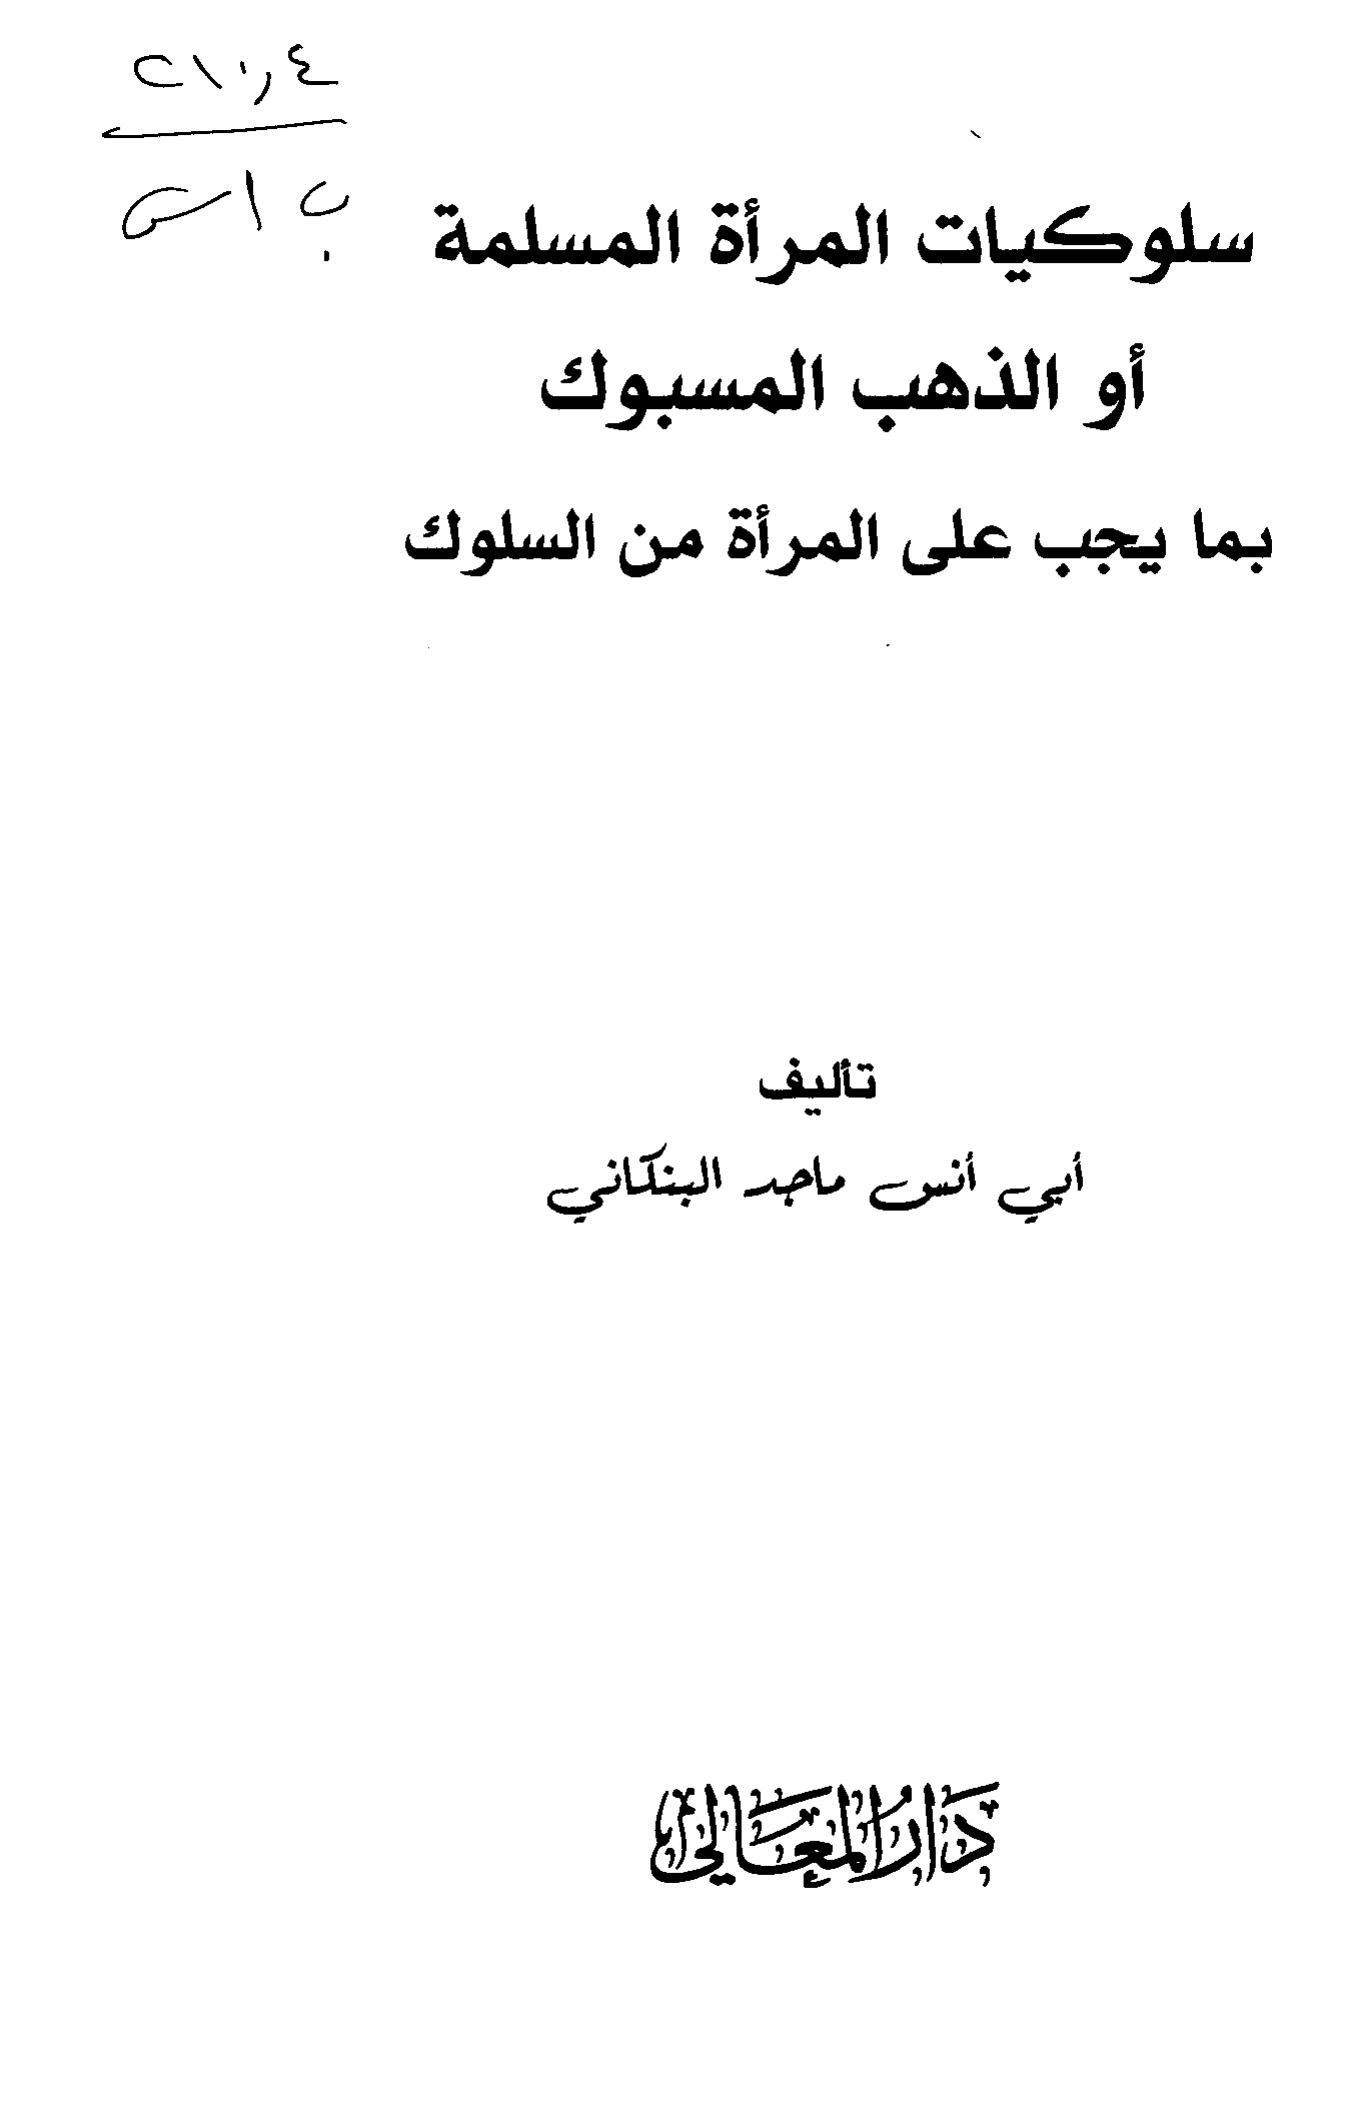 سلوكيات المرأة المسلمة
أو الذهب المسبوك
بما يجب على المرأة من السلوك
تأليف
أبي أنس ماجد البنكاني
دَارُ المَعَالي